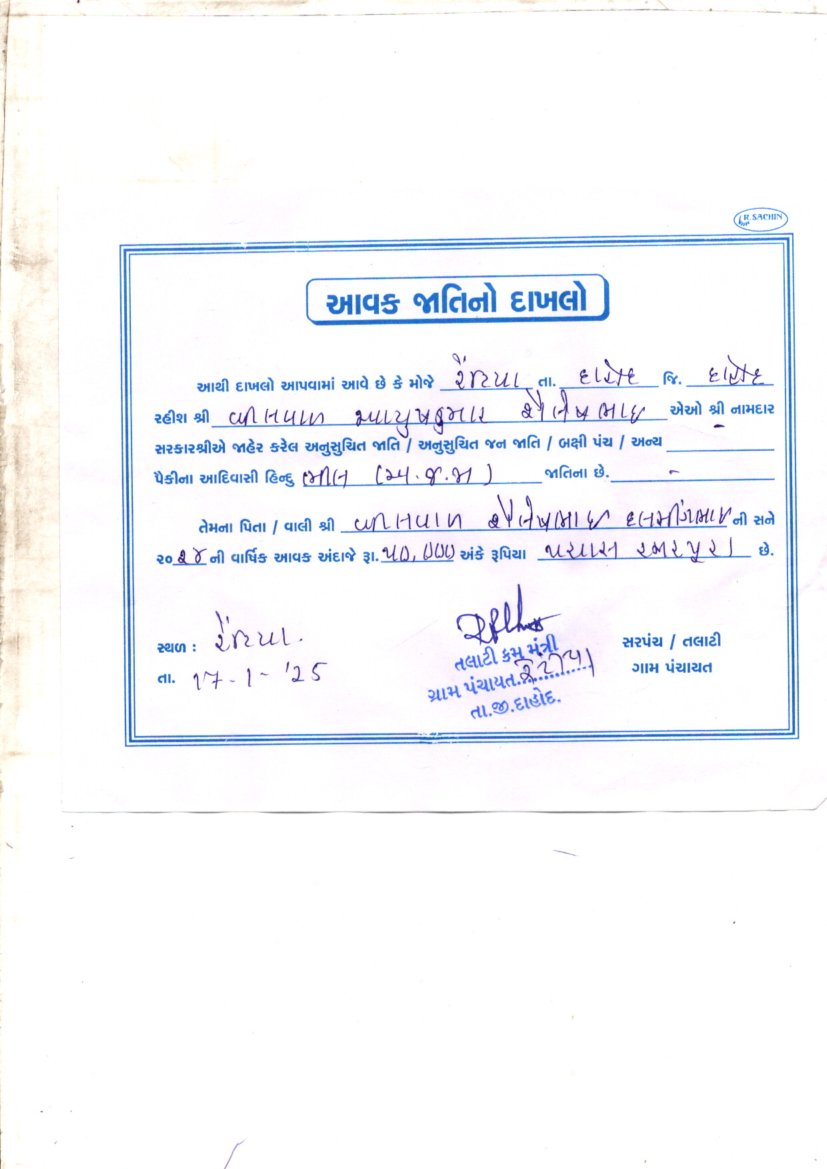 R. SACHIN
આવક જાતિનો દાખલો
આથી દાખલો આપવામાં આવે છે કે મોજે રેંટીયા તા. દાહોદ જિ. દાહોદ
રહીશ શ્રી આયુષકુમાર શૈલેષભાઇ એઓ શ્રી નામદાર
સરકારશ્રીએ જાહેર કરેલ અનુસુચિત જાતિ / અનુસુચિત જન જાતિ / બક્ષી પંચ / અન્ય -
પૈકીના આદિવાસી હિન્દુ ભીલ (અ.જ.જા) જાતિના છે. -
તેમના પિતા / વાલી શ્રી શૈલેષભાઇ ની સને
૨૦૨૪ ની વાર્ષિક આવક અંદાજે રૂા. ૫૦,૦૦૦ અંકે રૂપિયા પચાસ હજાર પુરા છે.
સ્થળ : રેંટીયા.
તા. 17-1-'25
તલાટી કમ મંત્રી
ગ્રામ પંચાયત રેંટીયા
તા.જી.દાહોદ.
સરપંચ / તલાટી
ગામ પંચાયત